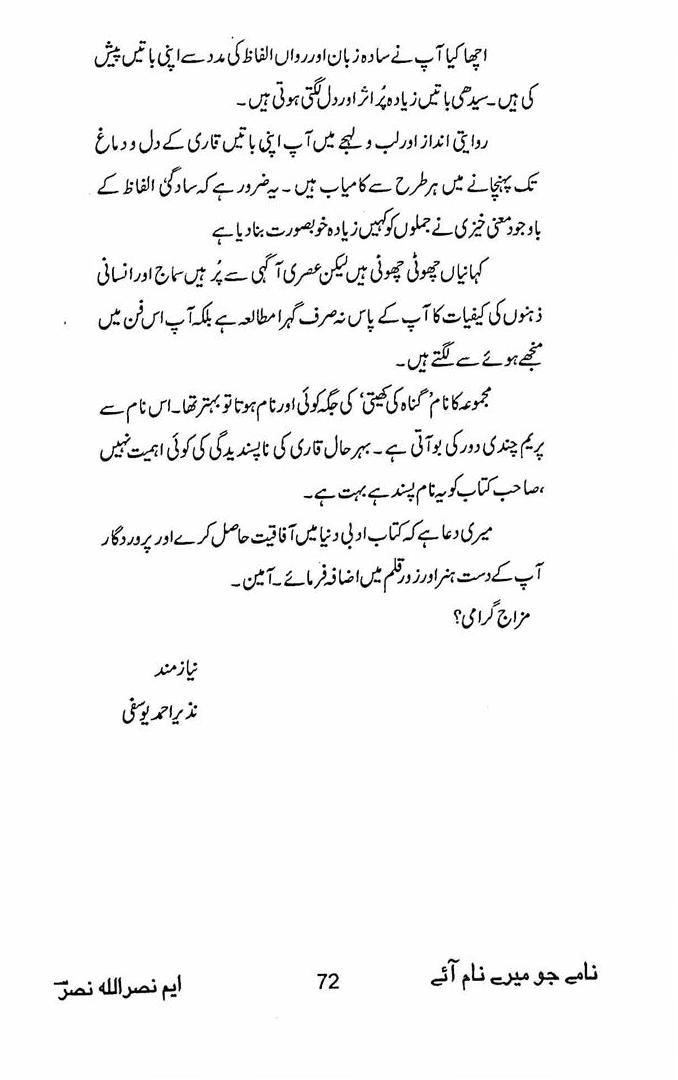 اچھا کیا آپ نے سادہ زبان اور رواں الفاظ کی مدد سے اپنی باتیں پیش
کی ہیں۔ سیدھی باتیں زیادہ پُر اثر اور دل لگتی ہوتی ہیں۔
روایتی انداز اور لب و لہجے میں آپ اپنی باتیں قاری کے دل و دماغ
تک پہنچانے میں ہر طرح سے کامیاب ہیں۔ یہ ضرور ہے کہ سادگیٔ الفاظ کے
باوجود معنی خیزی نے جملوں کو کہیں زیادہ خوبصورت بنا دیا ہے
کہانیاں چھوٹی چھوٹی ہیں لیکن عصری آگہی سے پُر ہیں سماج اور انسانی
ذہنوں کی کیفیات کا آپ کے پاس نہ صرف گہرا مطالعہ ہے بلکہ آپ اس فن میں
منجھے ہوئے سے لگتے ہیں۔
مجموعہ کا نام ’گناہ کی کھیتی‘ کی جگہ کوئی اور نام ہوتا تو بہتر تھا۔ اس نام سے
پریم چندی دور کی بو آتی ہے۔ بہر حال قاری کی ناپسندیدگی کی کوئی اہمیت نہیں
،صاحب کتاب کو یہ نام پسند ہے بہت ہے۔
میری دعا ہے کہ کتاب ادبی دنیا میں آفاقیت حاصل کرے اور پروردگار
آپ کے دست ہنر اور زور قلم میں اضافہ فرمائے۔ آمین۔
مزاج گرامی؟
نیازمند
نذیر احمد یوسفی
نامے جو میرے نام آئے 72 ایم نصر اللہ نصرؔ